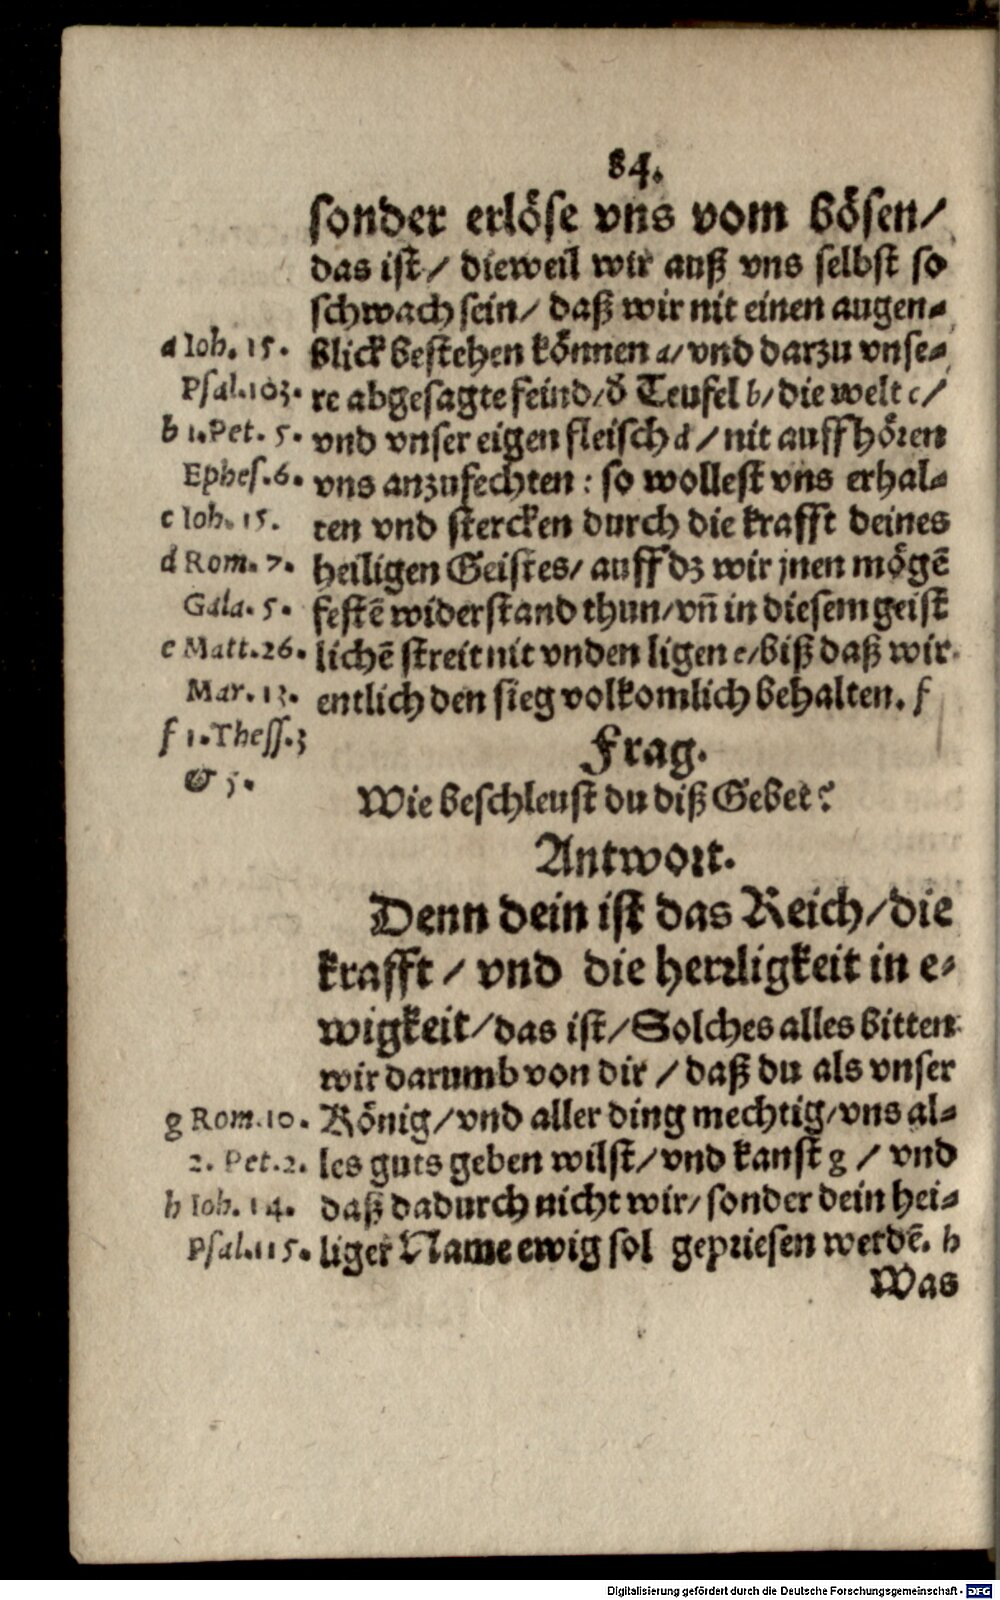 84.
sonder erlöse vns vom bösen/
das ist/ dieweil wir auß vns selbst so
schwach sein/ daß wir nit einen augen-
a Ioh. 15. blick bestehen können a/ vnd darzu vnse-
Psal. 103. re abgesagte feind/ d̾ Teufel b/ die welt c/
b 1. Pet. 5. vnd vnser eigen fleisch d/ nit auffhören
Ephes. 6. vns anzufechten: so wollest vns erhal-
c Ioh. 15. ten vnd stercken durch die krafft deines
d Rom. 7. heiligen Geistes/ auff dz wir jnen mögē
Gala. 5. festē widerstand thun/ vn̄ in diesem geist
e Matt. 26. lichē streit nit vnden ligen e/ biß daß wir
Mar. 13. entlich den sieg volkomlich behalten. f
f 1. Thess. 3
& 5.
Frag.
Wie beschleust du diß Gebet?
Antwort.
Denn dein ist das Reich/ die
krafft/ vnd die herrligkeit in e-
wigkeit/ das ist/ Solches alles bitten
wir darumb von dir/ daß du als vnser
g Rom. 10. König/ vnd aller ding mechtig/ vns al-
2. Pet. 2. les guts geben wilst/ vnd kanst g/ vnd
h Ioh. 14. daß dadurch nicht wir/ sonder dein hei-
Psal. 115. liger Name ewig sol gepriesen werdē. h
Was
Digitalisierung gefördert durch die Deutsche Forschungsgemeinschaft - DFG